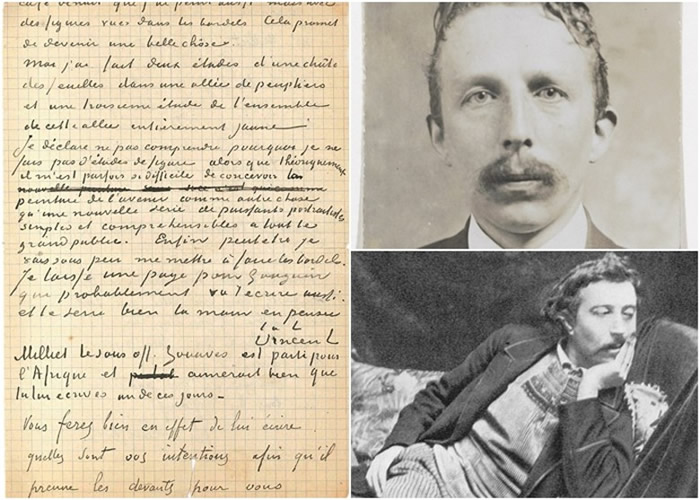 café devant que j'ai peint aussi mais avec
des figures vues dans les bordels Cela promet
de devenir une belle chôse.
Moi j'ai fait deux études d'une chûte
des feuilles dans une allée de peupliers
et une troisieme étude de l'ensemble
de cette allée entièrement jaune
Je déclare ne pas comprendre pourquoi je ne
fais pas d'études de figure alors que théoriquement
il m'est parfois si difficile de concevoir la
peinture de l'avenir comme autre chose
qu'une nouvelle serie de puissants portraitistes
simples et comprehensibles à tout le
grand public. Enfin peutetre je
vais sous peu me mettre à faire les bordels.
Je laisse une page pour Gauguin
qui probablement va t'ecrire aussi.
et te serre bien la main en pensée
t. à t.
Vincent
Milliet le sous off. Zouaves est parti pour
l'Afrique et aimerait bien que
tu lui ecrives un de ces jours –
Vous ferez bien en effet de lui écrire
quelles sont vos intentions afin qu'il
prenne les devants pour vous